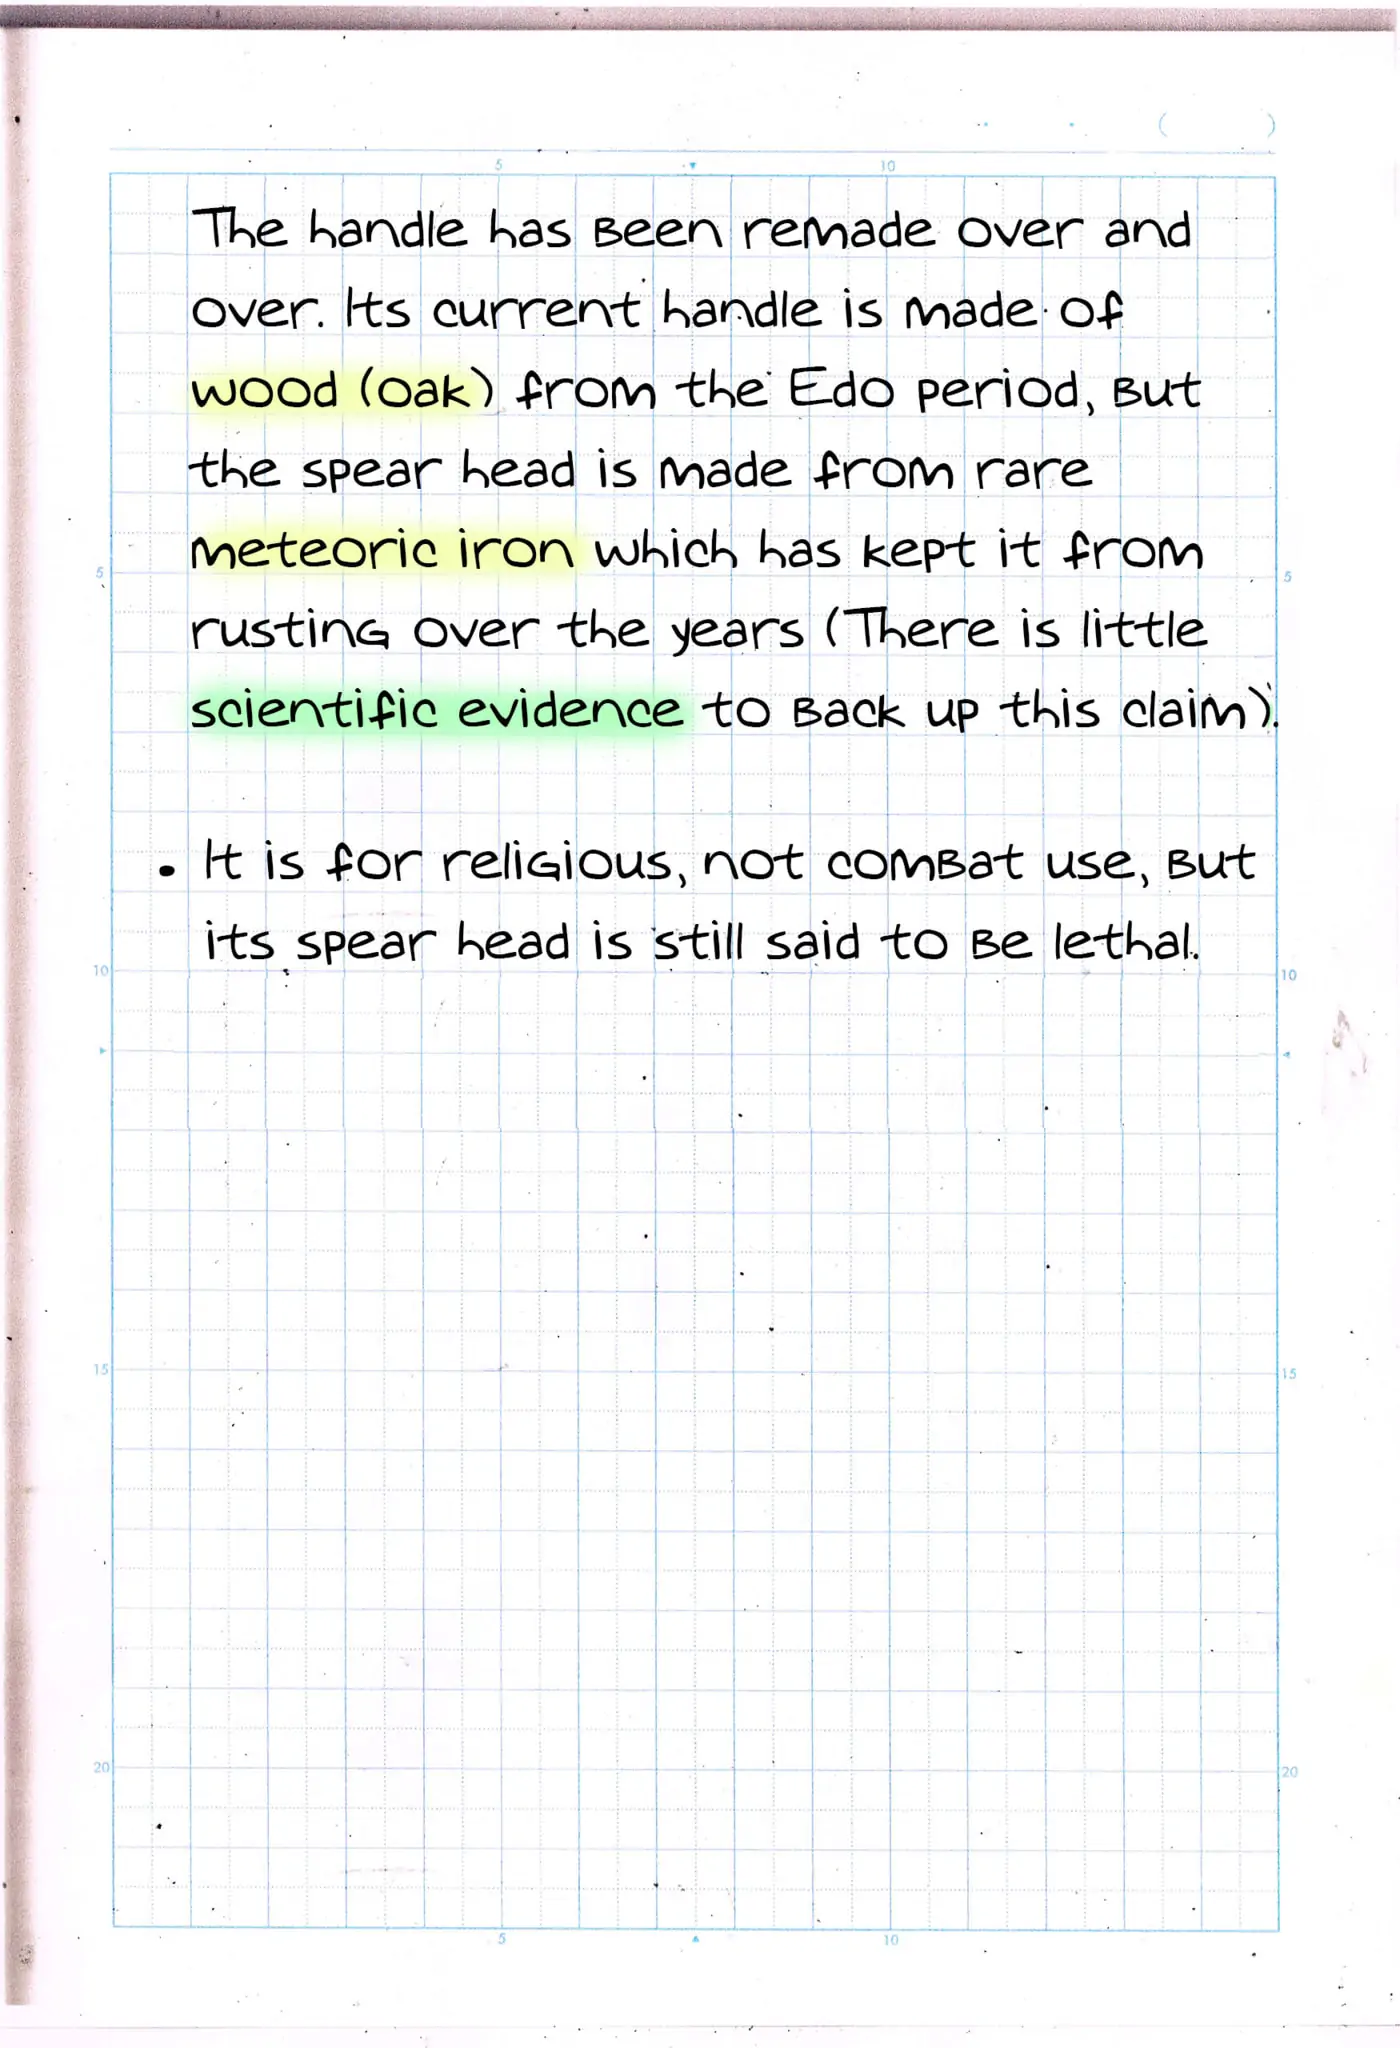 ( )
5 10
The handle has been remade over and
over. Its current handle is made of
wood (oak) from the Edo period, but
the spear head is made from rare
meteoric iron which has kept it from
5 5
rusting over the years (There is little
scientific evidence to back up this claim).
• It is for religious, not combat use, but
its spear head is still said to be lethal.
10 10
15 15
20 20
5 10